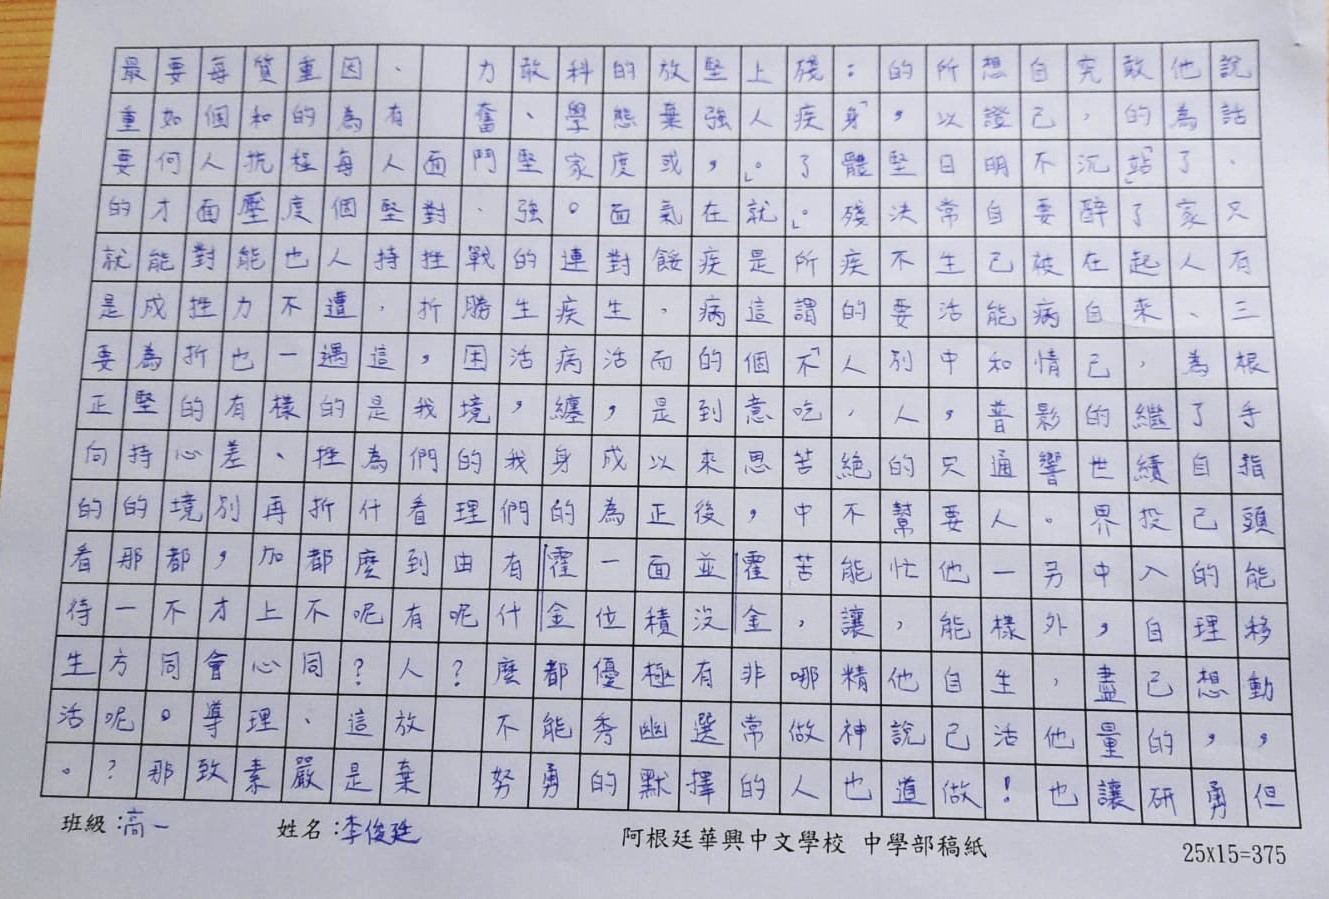 說話、只有三根手指頭能移動，但
他為了家人、為了自己的理想，勇
敢的「站」了起來，繼續投入自己的研
究，沉醉在自己的世界中，盡量讓
自己不要被病情影響。另外，他也
想證明自己能和普通人一樣生活！
所以日常生活中，只要他能自己做
的，堅決不要別人的幫忙，他說道
：「身體殘疾的人，絕不能讓精神也
殘疾了。」所謂「不吃苦中苦，哪做人
上人。」就是這個意思，霍金非常的
堅強，在疾病的到來後並沒有選擇
放棄或氣餒，而是以正面積極幽默
的態度面對生活，成為一位優秀的
科學家。連疾病纏身的霍金都能勇
敢、堅強的生活，我們有什麼不努
力奮鬥、戰勝困境的理由呢？
面對挫折，我們看到有人放棄
、有人堅持，這是為什麼呢？這是
因為每個人遭遇的挫折都不同、嚴
重的程度也不一樣、再加上心理素
質和抗壓能力也有差別，才會導致
每個人面對挫折的心境都不同。那
要如何才能成為堅持的那一方呢？
最重要的就是要正向的看待生活。
班級：高一 姓名：李俊廷 阿根廷華興中文學校 中學部稿紙 25x15=375